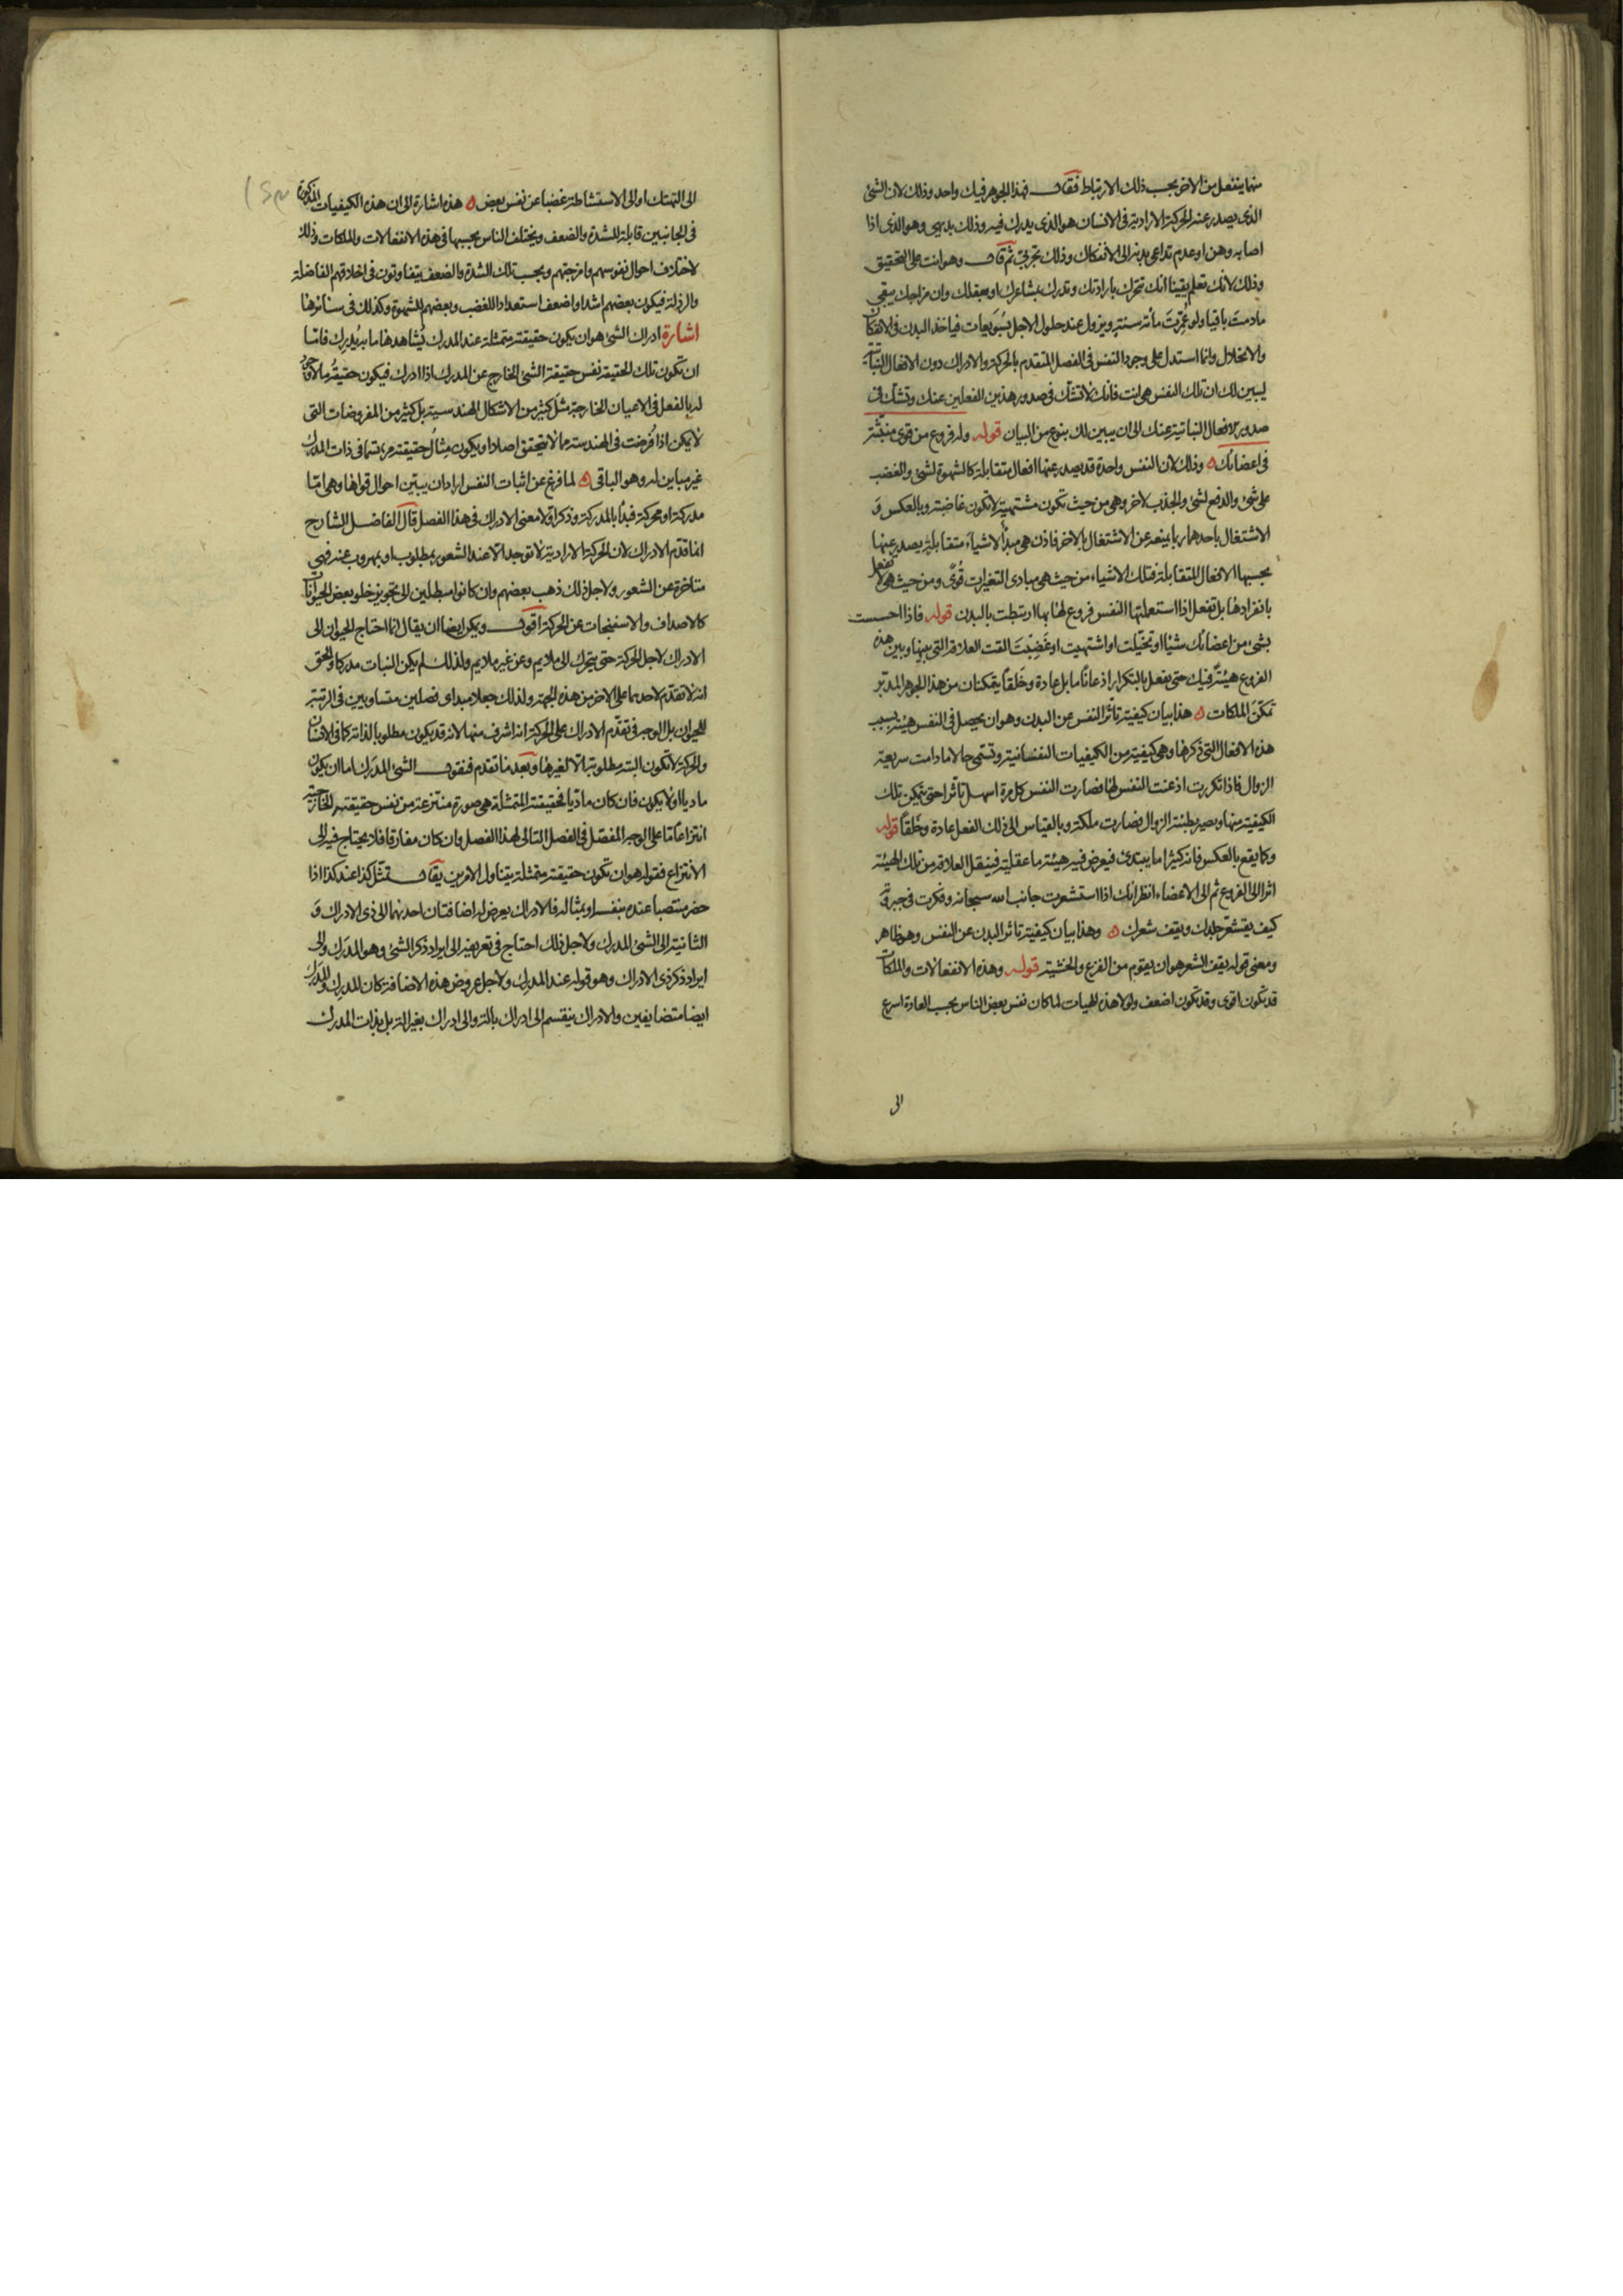 منهما ينفعل من الاخر بحسب ذلك الارتباط فقال فهذا الجوهر فيك واحد وذلك لان الشئ
الذى يصدر عنه الحركة الارادية فى الانسان هو الذى يدرك فيه وذلك بديهى وهو الذى اذا
اصابه وهن او عدم تداعى بدنه الى الانفكاك وذلك تجربى ثم قال وهو انت على التحقيق
وذلك لانك تعلم يقينا انك تتحرك بارادتك وتدرك بمشاعرك او بعقلك وان مزاجك يبقى
مادمت باقيا ولو عمرت مائة سنة ويزول عند حلول الاجل بسويعات فياخذ البدن فى الانفكاك
والانحلال وانما استدل على وجود النفس فى الفصل المتقدم بالحركة والادراك دون الافعال النباتية
ليبين لك ان تلك النفس هى انت فانك لا تشك فى صدور هذين الفعلين عنك وتشك فى
صدور الافعال النباتية عنك الى ان يبين لك بنوع من البيان قوله وله فروع من قوى منبثة
فى اعضائك ه وذلك لان النفس واحدة قد يصدر عنها افعال متقابلة كالشهوة لشئ والغضب
على شئ والدفع لشئ والجذب لاخر وهى من حيث تكون مشتهية لا تكون غاضبة وبالعكس و
الاشتغال باحدهما ربما يمنعه عن الاشتغال بالاخر فاذن هى مبدأ لاشياء متقابلة يصدر عنها
بحسبها الافعال المتقابلة فتلك الاشياء من حيث هى مبادى التغيرات قوى ومن حيث هى لا تفعل
بانفرادها بل تفعل اذا استعملتها النفس فروع لها بها ارتبطت بالبدن قوله فاذا احسست
بشئ من اعضائك شيئا او تخيلت او اشتهيت او غضبت القت العلاقة التى بينها وبين هذه
الفروع هيئة فيك حتى يفعل بالتكرار اذعانا ما بل عادة وخلقا يتمكنان من هذا الجوهر المدبر
تمكن الملكات ه هذا بيان كيفية تأثر النفس عن البدن وهو ان يحصل فى النفس هيئة بسبب
هذه الافعال التى ذكرها وهى كيفية من الكيفيات النفسانية وتسمى حالا مادامت سريعة
الزوال فاذا تكررت اذعنت النفس لها فصارت النفس كل مرة اسهل تأثرا حتى يتمكن تلك
الكيفية منها ويصير بطيئة الزوال فصارت ملكة وبالقياس الى ذلك الفعل عادة وخلقا قوله
وكما يقع بالعكس فانه كثيرا ما يبتدئ فيعرض فيه هيئة ما عقلية فينقل العلاقة من تلك الهيئة
اثرا الى الفروع ثم الى الاعضاء انظر انك اذا استشعرت جانب الله سبحانه وفكرت فى جبروته
كيف يقشعر جلدك ويقف شعرك ه وهذا بيان كيفية تاثر البدن عن النفس وهو ظاهر
ومعنى قوله يقف الشعر هو ان يقوم من الفزع والخشية قوله وهذه الانفعالات والملكات
قد تكون اقوى وقد تكون اضعف ولولا هذه الهيات لما كان نفس بعض الناس بحسب العادة اسرع
الى
الى التهتك او الى الاستشاطة غضبا عن نفس بعض ه هذه اشارة الى ان هذه الكيفيات المذكورة
فى الجانبين قابلة للشدة والضعف ويختلف الناس بحسبها فى هذه الانفعالات والملكات وذلك
لاختلاف احوال نفوسهم وامزجتهم وبحسب تلك الشدة والضعف يتفاوتون فى اخلاقهم الفاضلة
والرذلة فيكون بعضهم اشد او اضعف استعدادا للغضب وبعضهم للشهوة وكذلك فى سائرها
اشارة ادراك الشئ هو ان يكون حقيقته متمثلة عند المدرك يشاهدها ما به يدرك فاما
ان تكون تلك الحقيقة نفس حقيقة الشئ الخارج عن المدرك اذا ادرك فيكون حقيقة ما لا وجود
له بالفعل فى الاعيان الخارجة مثل كثير من الاشكال الهندسية بل كثير من المفروضات التى
لا يمكن اذا فرضت فى الهندسة مما لا يتحقق اصلا او يكون مثال حقيقته مرتسما فى ذات المدرك
غير مباين له وهو الباقى ه لما فرغ عن اثبات النفس اراد ان يبين احوال قواها وهى اما
مدركة او محركة فبدأ بالمدركة وذكر اولا معنى الادراك فى هذا الفصل قال الفاضل الشارح
انما قدم الادراك لان الحركة الارادية لا توجد الا عند الشعور بمطلوب او بمهروب عنه فهى
متاخرة عن الشعور ولاجل ذلك ذهب بعضهم وان كانوا مبطلين الى تجويز خلو بعض الحيوانات
كالاصداف والاسفنجات عن الحركة اقول ويمكن ايضا ان يقال انما احتاج الحيوان الى
الادراك لاجل الحركة حتى يتحرك الى ملايم وعن غير ملايم ولذلك لم يكن النبات مدركا والحق
انه لا تقدم لاحدهما على الاخر من هذه الجهة ولذلك جعلا مبدأى فصلين متساويين فى الرتبة
للحيوان بل الوجه فى تقدم الادراك على الحركة انه اشرف منها لانه قد يكون مطلوبا لذاته كما فى الانسان
والحركة لا تكون البتة مطلوبة الا لغيرها وبعد ما تقدم فنقول الشئ المدرك اما ان يكون
ماديا او لا يكون فان كان ماديا فحقيقته المتمثلة هى صورة منتزعة من نفس حقيقته الخارجية
انتزاعا ما على الوجه المفصل فى الفصل التالى لهذا الفصل وان كان مفارقا فلا يحتاج فيه الى
الانتزاع فقوله هو ان تكون حقيقته متمثلة يتناول الامرين يقال تمثل كذا عند كذا اذا
حضر منتصبا عنده بنفسه او بمثاله فالادراك يعرض له اضافتان احدهما الى ذى الادراك و
الثانية الى الشئ المدرك ولاجل ذلك احتاج فى تعريفه الى ايراد ذكر الشئ وهو المدرك والى
ايراد ذكر ذى الادراك وهو قوله عند المدرك ولاجل عروض هذه الاضافة كان المدرك والمدرك
ايضا متضايفين والادراك ينقسم الى ادراك بالة والى ادراك بغير الة بل بذات المدرك